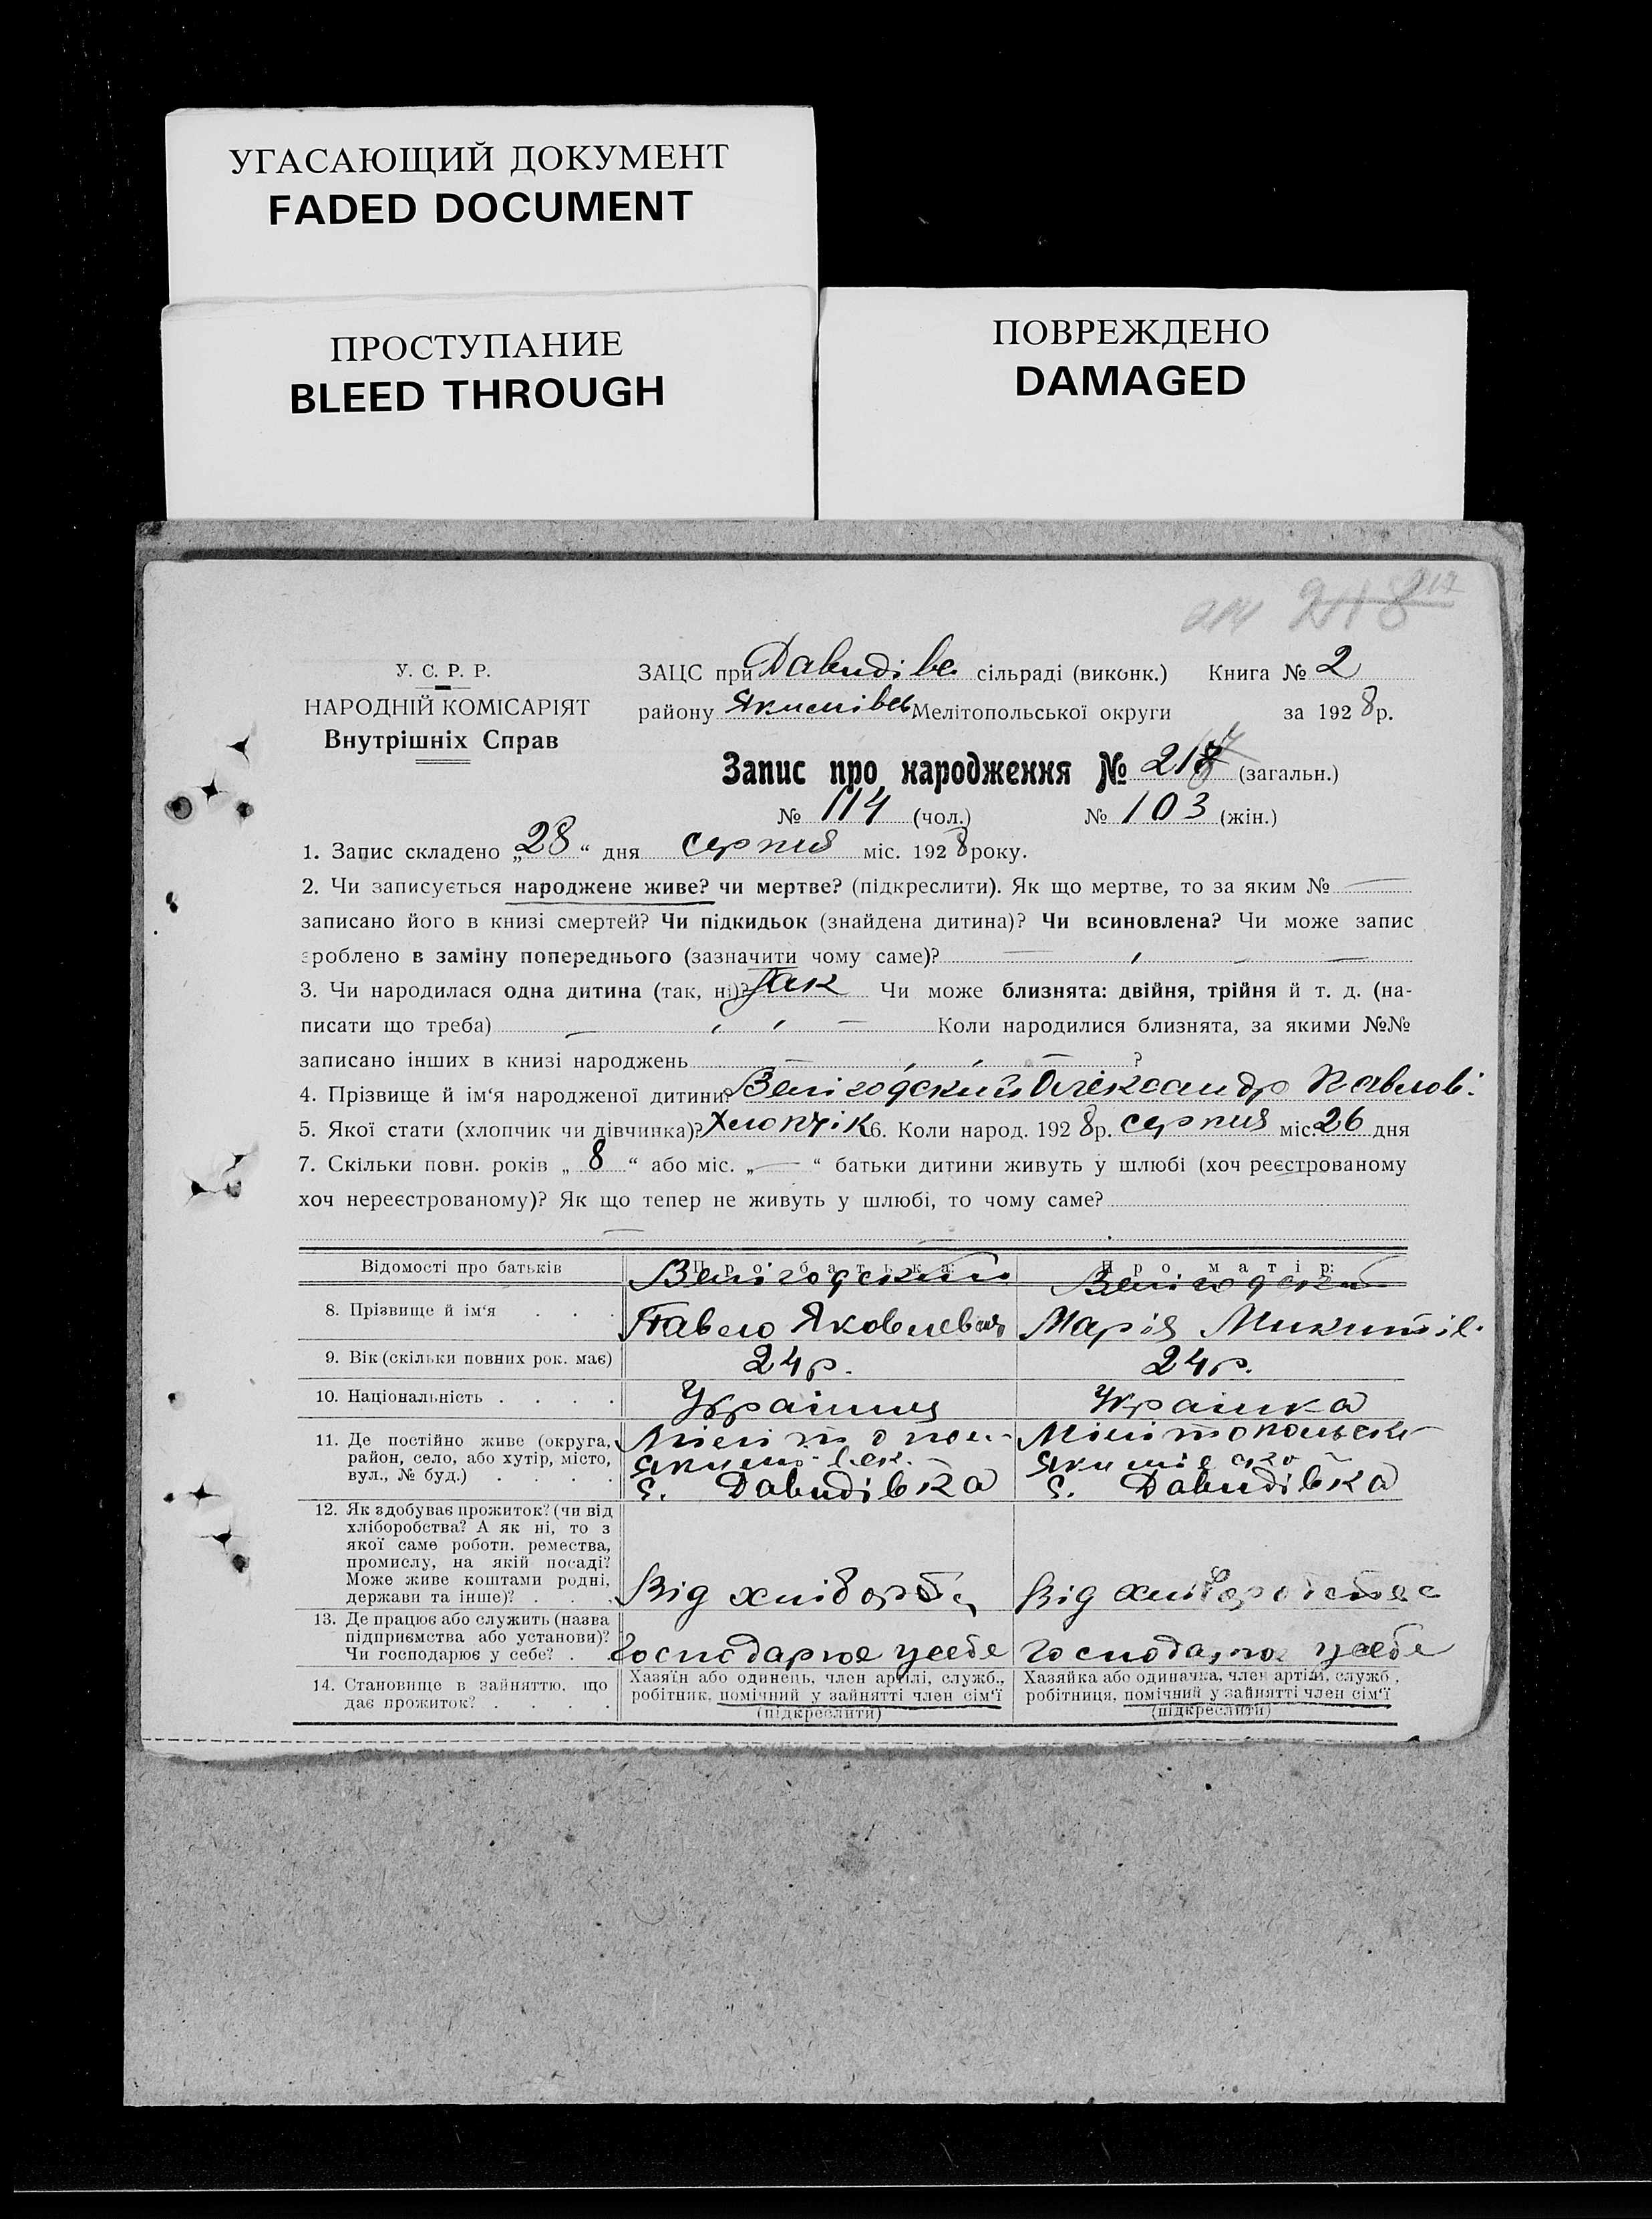 УГАСАЮЩИЙ ДОКУМЕНТ
FADED DOCUMENT
ПРОСТУПАНИЕ
BLEED THROUGH
ПОВРЕЖДЕНО
DAMAGED
У. С. Р. Р.
НАРОДНІЙ КОМІСАРІЯТ
Внутрішніх Справ
ЗАЦС при Давидівс. сільраді (виконк.) Книга № 2
району Якимівсь Мелітопольської округи за 1928р.
Запис про народження № 217 (загальн.)
№ 114 (чол.) № 103 (жін.)
1. Запис складено „28“ дня серпня міс. 1928 року.
2. Чи записується народжене живе? чи мертве? (підкреслити). Як що мертве, то за яким №
записано його в книзі смертей? Чи підкидьок (знайдена дитина)? Чи всиновлена? Чи може запис
зроблено в заміну попереднього (зазначити чому саме)?
3. Чи народилася одна дитина (так, ні)? Так Чи може близнята: двійня, трійня й т. д. (на-
писати що треба) Коли народилися близнята, за якими №№
записано інших в книзі народжень ?
4. Прізвище й ім‘я народженої дитини? Велігодский Олександр Павлові.
5. Якої стати (хлопчик чи дівчинка)? Хлопчік 6. Коли народ. 1928р. серпня міс. 26 дня
7. Скільки повн. років „8“ або міс. „—“ батьки дитини живуть у шлюбі (хоч реєстрованому
хоч нереєстрованому)? Як що тепер не живуть у шлюбі, то чому саме?
Відомості про батьків Про батька: Про матір:
8. Прізвище й ім‘я . . . Велігодский Павло Яковлевич Велігодский Марія Микитів.
9. Вік (скільки повних рок. має) 24р. 24р.
10. Національність . . . . Українця Українка
11. Де постійно живе (округа,
район, село, або хутір, місто,
вул., № буд.) . . . .
Мелітопол. Мелітопольськ
с. Давидівка с. Давидівка
12. Як здобуває прожиток? (чи від
хліборобства? А як ні, то з
якої саме роботи. ремества,
промислу, на якій посаді?
Може живе коштами родні,
держави та інше)? . . .
Від Від
13. Де працює або служить (назва
підприємства або установи)?
Чи господарює у себе? .
Господарює у себе Господарює у себе
14. Становище в зайняттю, що
дає прожиток? . . . .
Хазяїн або одинець, член артілі, служб.,
робітник, помічний у зайнятті член сім‘ї
(підкреслити)
Хазяйка або одиначка, член артілі, служб.,
робітниця, помічний у зайнятті член сім‘ї
(підкреслити)